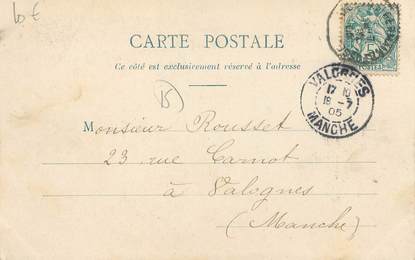 10 €
CARTE POSTALE
Ce côté est exclusivement réservé à l'adresse
15
VALOGNES
17 10
18 -7
05
MANCHE
Monsieur Rousset
23 rue Carnot
à Valognes
(Manche)